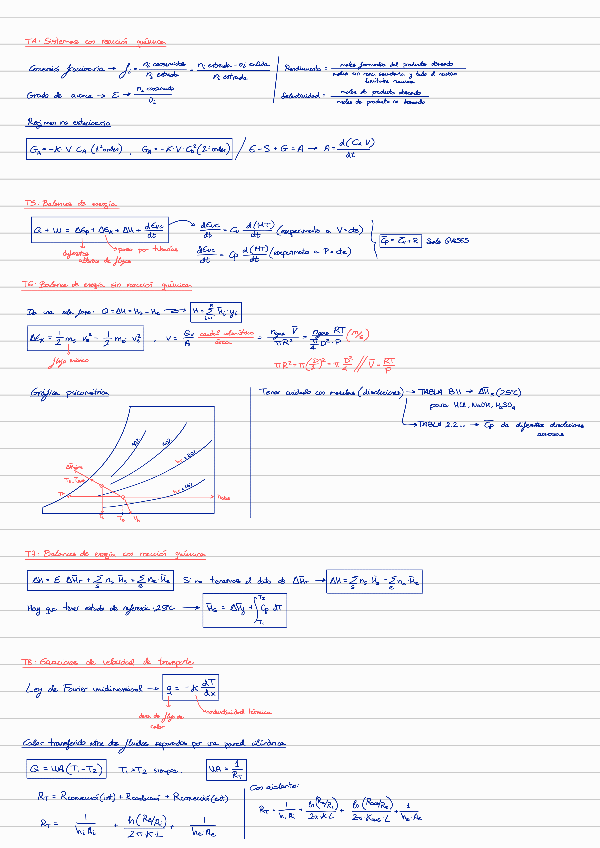 T4: Sistemas con reacción química
Conversión fraccionaria → fc = ni consumidos / ni entrada = ni entrada - ni salida / ni entrada
Rendimiento = moles formados del producto deseado / moles sin reac. secundaria y todo el reactivo limitante
Grado de avance → E → ni / υi
Selectividad = moles de producto deseado / moles de producto no deseado
Régimen no estacionario
GA = -K·V·CA (1º orden) , GA = -K·V·CA² (2º orden) / E - S + G = A → A = d(CA V) / dt
T5: Balances de energía
Q + W = ΔEp + ΔEk + ΔH + dEvc/dt
dEvc/dt = Cv d(MT)/dt (experimento a V = cte)
dEvc/dt = Cp d(MT)/dt (experimento a P = cte)
C̄p = C̄v + R Solo GASES
diferentes alturas de flujos
paso por tuberías
T6: Balances de energía sin reacción química
De una sola fase: Q = ΔH = Hs - He → H = Σ H̄i·yi
ΔEk = 1/2 ms vs² - 1/2 me ve² , v = Gv/A = caudal volumétrico / área = ngas V̄ / πR² = ngas RT / π/4 D²·P (m/s)
flujo másico
πR² = π(D/2)² = π D²/4 // V̄ = RT/P
Gráfica psicométrica
Tener cuidado con mezclas (disoluciones) → TABLA B.11 → ΔH̄s (25ºC)
para HCl, NaOH, H2SO4
→ TABLA 2.2... → C̄p de diferentes disoluciones acuosas
T7: Balances de energía con reacción química
ΔH = E ΔH̄r + Σ ns H̄s - Σ ne H̄e Si no tenemos el dato de ΔH̄r → ΔH = Σ ns H̄s - Σ ne H̄e
Hay que tener estado de referencia, 25ºC → H̄s = ΔH̄f + ∫ Cp dT
T8: Ecuaciones de velocidad de transporte
Ley de Fourier unidimensional → q = -K dT/dx
densidad de flujo de calor
conductividad térmica
Calor transferido entre dos fluidos separados por una pared cilíndrica
Q = UA(T1 - T2) T1 > T2 siempre. UA = 1/RT
Con aislante:
RT = Rconvección(int) + Rconducción + Rconvección(ext)
RT = 1/hi Ai + ln(Re/Ri)/2πKL + ln(Rais/Re)/2πKais L + 1/he Ae
RT = 1/hi Ai + ln(Re/Ri)/2πKL + 1/he Ae